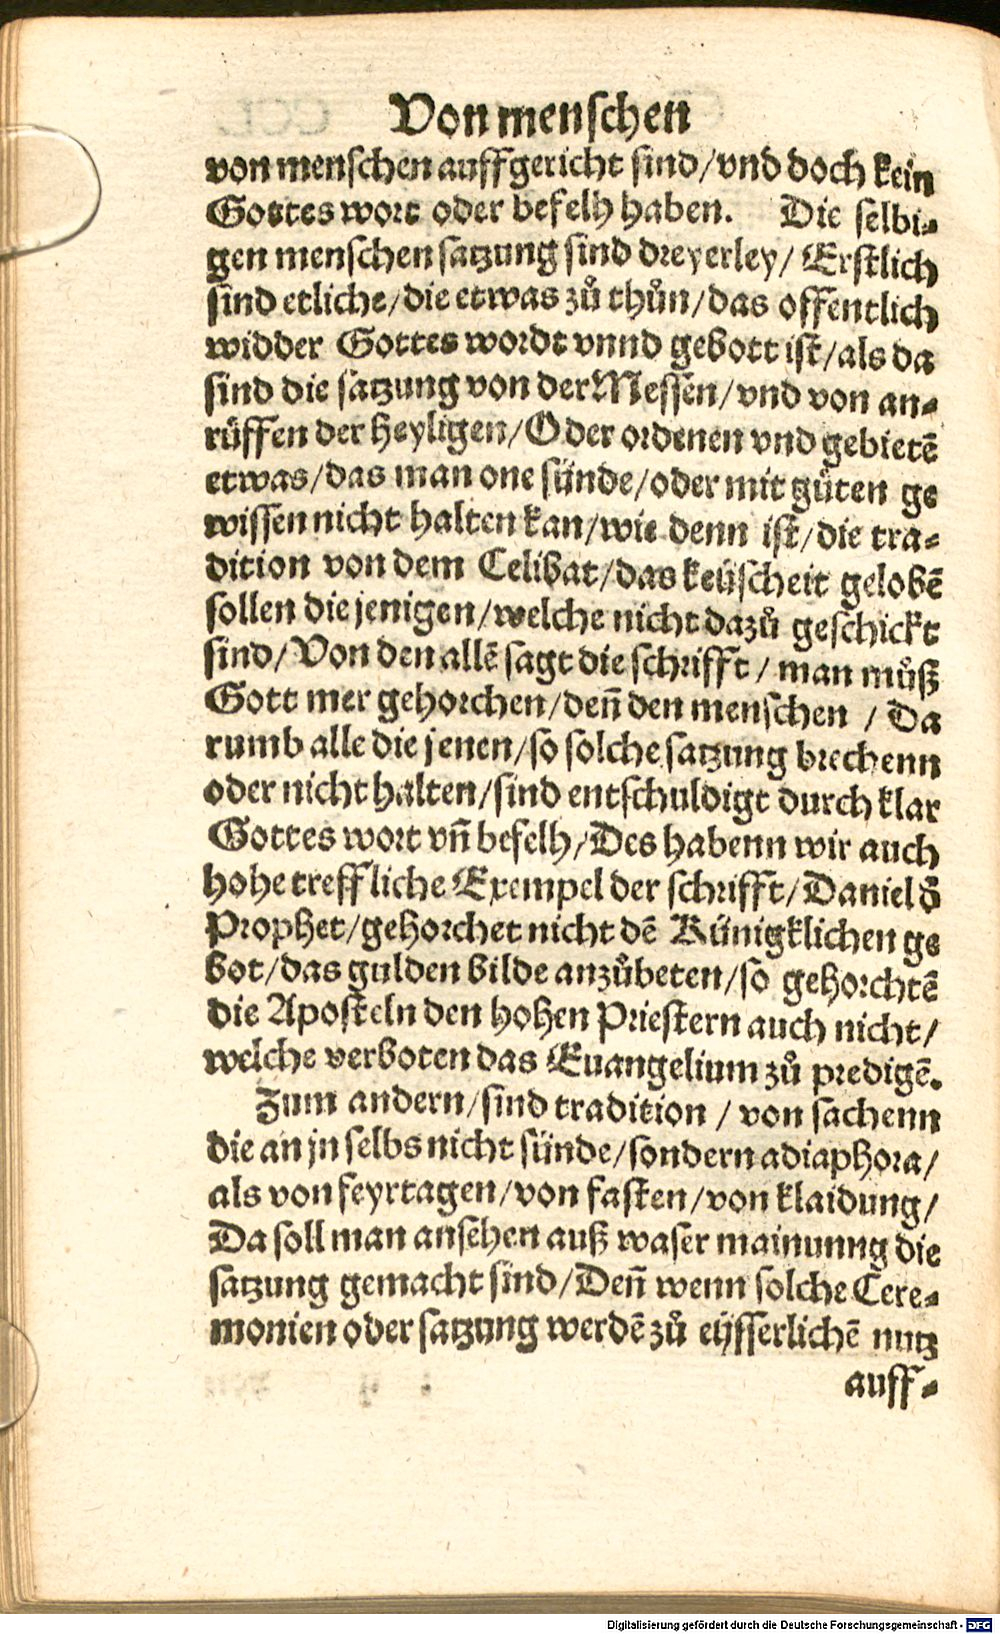 Von menschen
von menschen auffgericht sind/vnd doch kein
Gottes wort oder befelh haben. Die selbi⸗
gen menschen satzung sind dreyerley/ Erstlich
sind etliche/die etwas zů thůn/das offentlich
widder Gottes wordt vnnd gebott ist/als da
sind die satzung von der Messen/vnd von an⸗
rüffen der Heyligen/Oder ordenen vnd gebietẽ
etwas/das man one sünde/oder mit gůten ge
wissen nicht halten kan/wie denn ist/die tra⸗
dition von dem Celibat/das keüscheit gelobẽ
sollen die jenigen/welche nicht dazů geschickt
sind/Von den allẽ sagt die schrifft/ man můß
Gott mer gehorchen/deñ den menschen / Da
rumb alle die jenen/so solche satzung brechenn
oder nicht halten/sind entschuldigt durch klar
Gottes wort vñ befelh/Des habenn wir auch
hohe treffliche Exempel der schrifft/Daniel d̃
Prophet/gehorchet nicht dẽ Künigklichen ge
bot/das gulden bilde anzůbeten/so gehorchtẽ
die Aposteln den hohen Priestern auch nicht/
welche verboten das Euangelium zů predigẽ.
Zum andern/sind tradition / von sachenn
die an jn selbs nicht sünde/sondern adiaphora/
als von feyrtagen/von fasten/von klaidung/
Da soll man ansehen auß waser mainunng die
satzung gemacht sind/Deñ wenn solche Cere⸗
monien oder satzung werdẽ zů eüsserlichẽ nutz
auff⸗
Digitalisierung gefördert durch die Deutsche Forschungsgemeinschaft - DFG